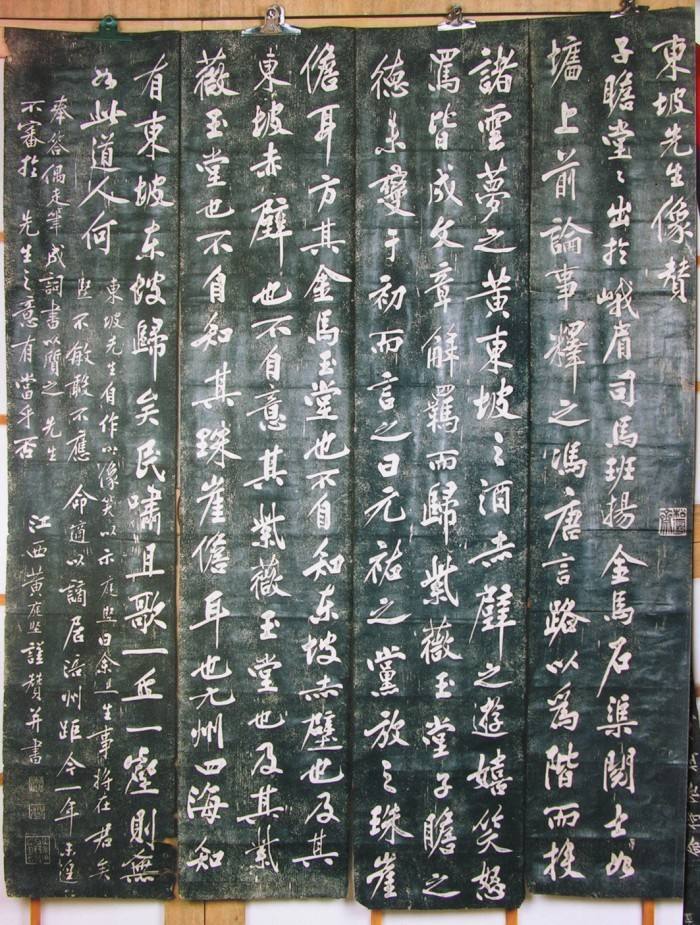 東坡先生像贊
子瞻堂〻出於峨眉司馬班揚金馬石渠閱士如
墻上前論事釋之馮唐言路以為階而投
諸雲夢之黃東坡之酒赤壁之遊嬉笑怒
罵皆成文章解羈而歸紫薇玉堂子瞻之
德未變于初而言之曰元祐之黨放之珠崖
儋耳方其金馬玉堂也不自知東坡赤壁也及其
東坡赤壁也不自意其紫薇玉堂也及其紫
薇玉堂也不自知其珠崖儋耳也九州四海知
有東坡東坡歸矣民嘯且歌一丘一壑則無
如此道人何
東坡先生自作以像笑以示庭堅曰余生事將在君矣
堅不敏敢不應命適以謫居涪州距今一年未遑
奉答偶走筆成詞書以之先生
不審於先生之意有當乎否
江西黃庭堅謹贊并書